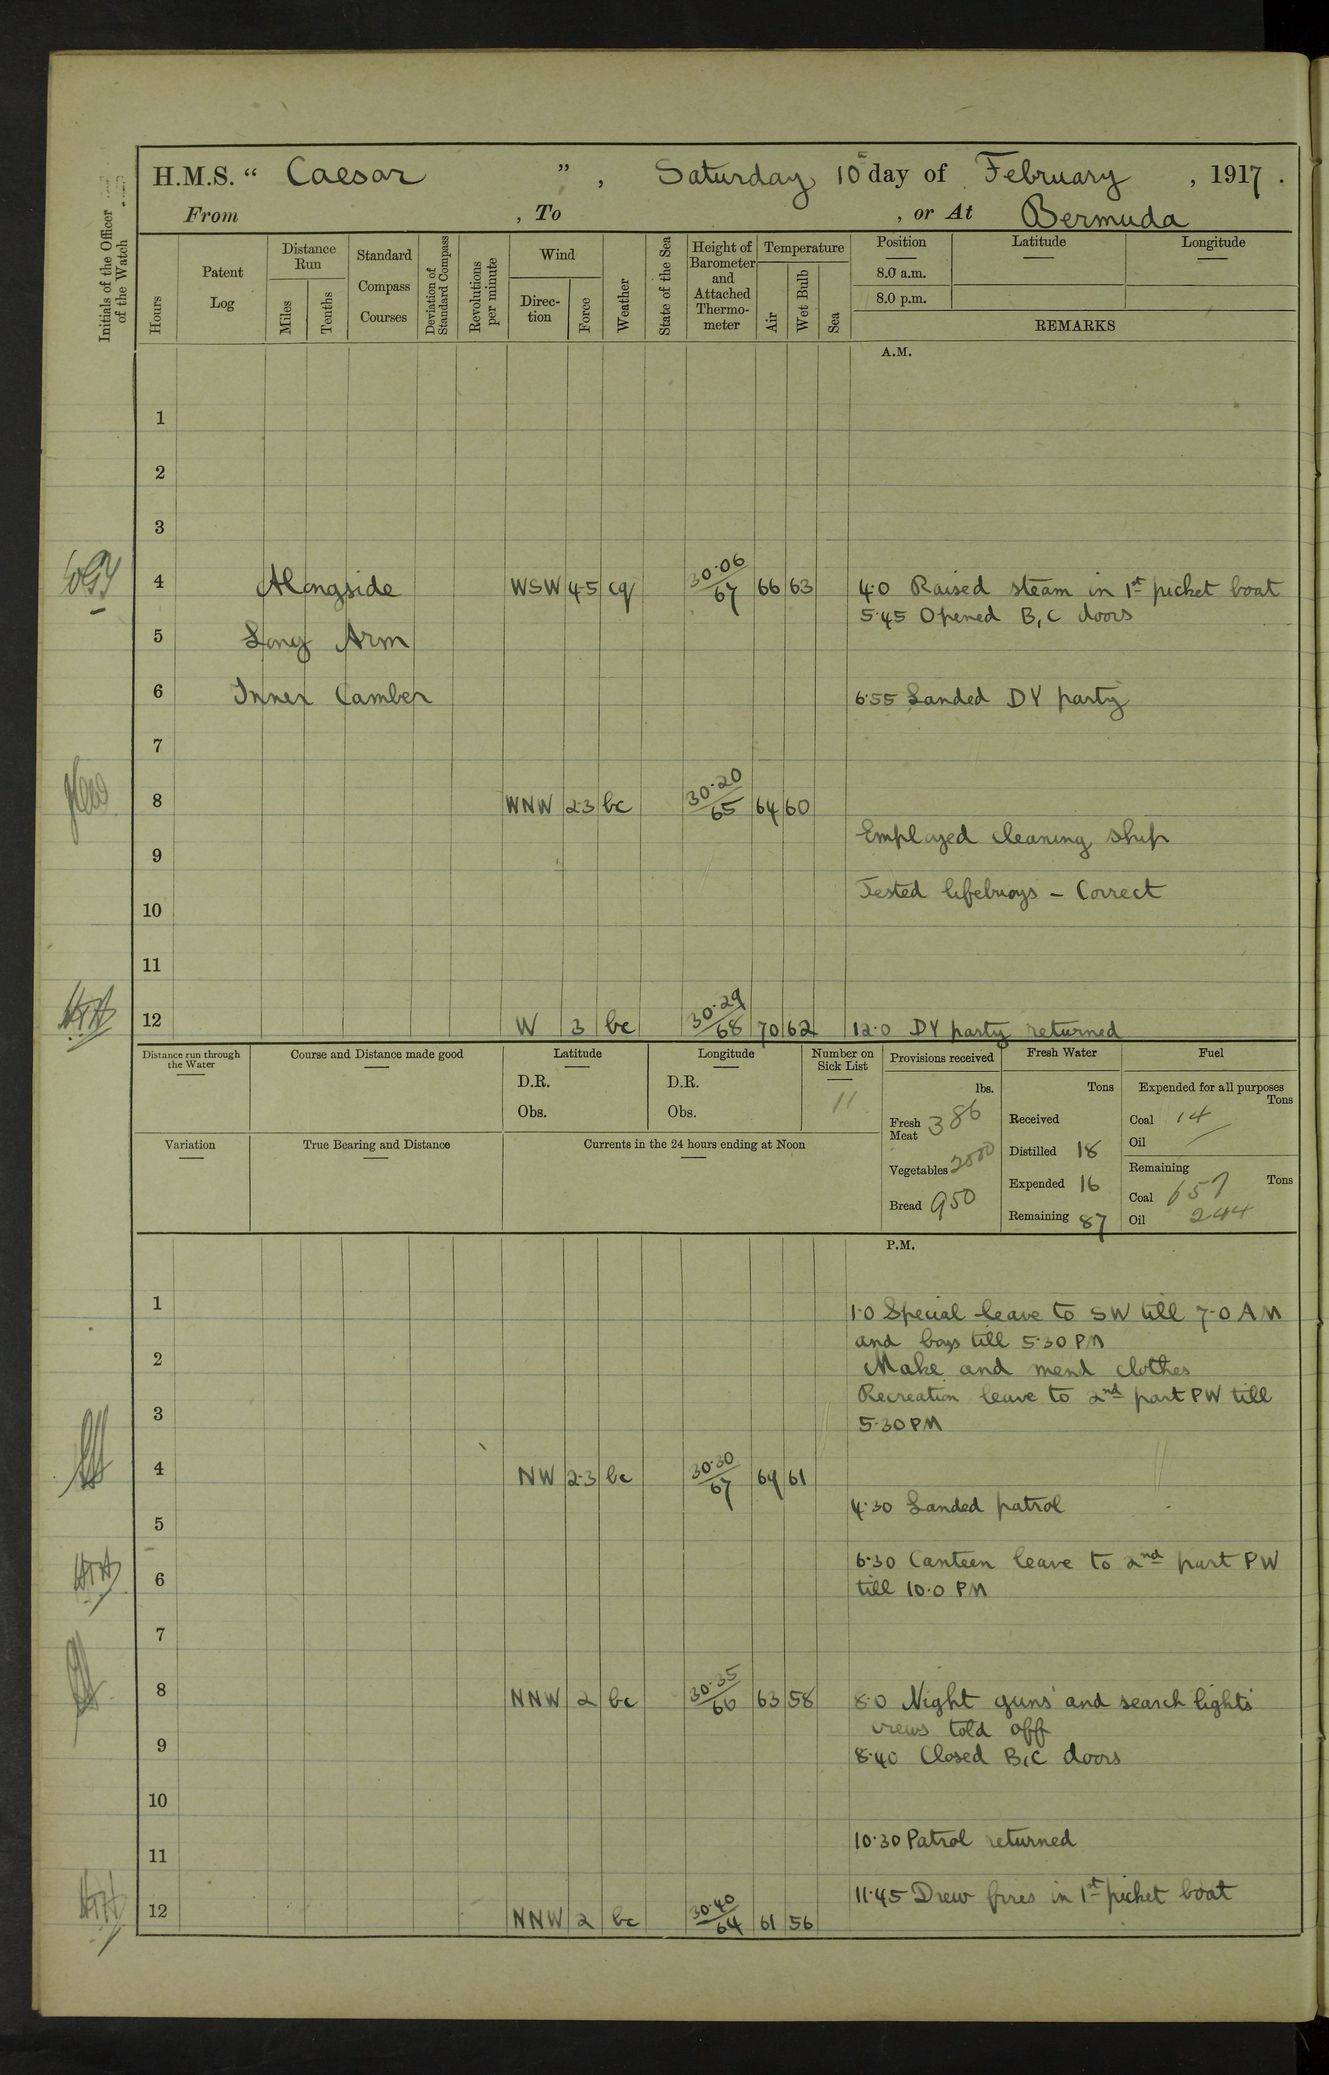 H.M.S. “ Caesar ” , Saturday 10th day of February , 1917 .
From , To , or At Bermuda
Initials of the Officer of the Watch
Hours
Patent Log
Distance Run
Miles
Tenths
Standard Compass Courses
Deviation of Standard Compass
Revolutions per minute
Wind
Direc-tion
Force
Weather
State of the Sea
Height of Barometer and Attached Thermo-meter
Temperature
Air
Wet Bulb
Sea
Position
8.0 a.m.
8.0 p.m.
Latitude
Longitude
REMARKS
A.M.
1
2
3
4 Alongside WSW 4·5 cq 30·06/67 66 63 4·0 Raised steam in 1st picket boat
5·45 Opened B,C doors
5 Long Arm
6 Inner Camber 6·55 Landed DY party
7
8 WNW 2·3 bc 30·20/65 64 60
Employed cleaning ship
9
Tested lifebuoys – Correct
10
11
12 W 3 bc 30·29/68 70 62 12·0 DY party returned
Distance run through the Water
Course and Distance made good
Latitude
D.R.
Obs.
Longitude
D.R.
Obs.
Number on Sick List
11
Provisions received
lbs.
Fresh Meat 386
Vegetables
Bread 950
Fresh Water
Tons
Received
Distilled 18
Expended 16
Remaining 87
Fuel
Expended for all purposes
Tons
Coal 14
Oil —
Remaining
Tons
Coal 657
Oil 244
Variation
True Bearing and Distance
Currents in the 24 hours ending at Noon
P.M.
1 1·0 Special leave to SW till 7·0 AM
and boys till 5·30 PM
2 Make and mend clothes
Recreation leave to 2nd part PW till
3 5·30 PM
4 NW 2·3 bc 30·30/67 64 61
4·30 Landed patrol
5
6·30 Canteen leave to 2nd part PW
6 till 10·0 PM
7
8 NNW 2 bc 30·35/66 63 58 8·0 Night guns' and search lights'
crews told off
9 8·40 Closed B,C doors
10
10·30 Patrol returned
11
11·45 Drew fires in 1st picket boat
12 NNW 2 bc 30·40/64 61 56